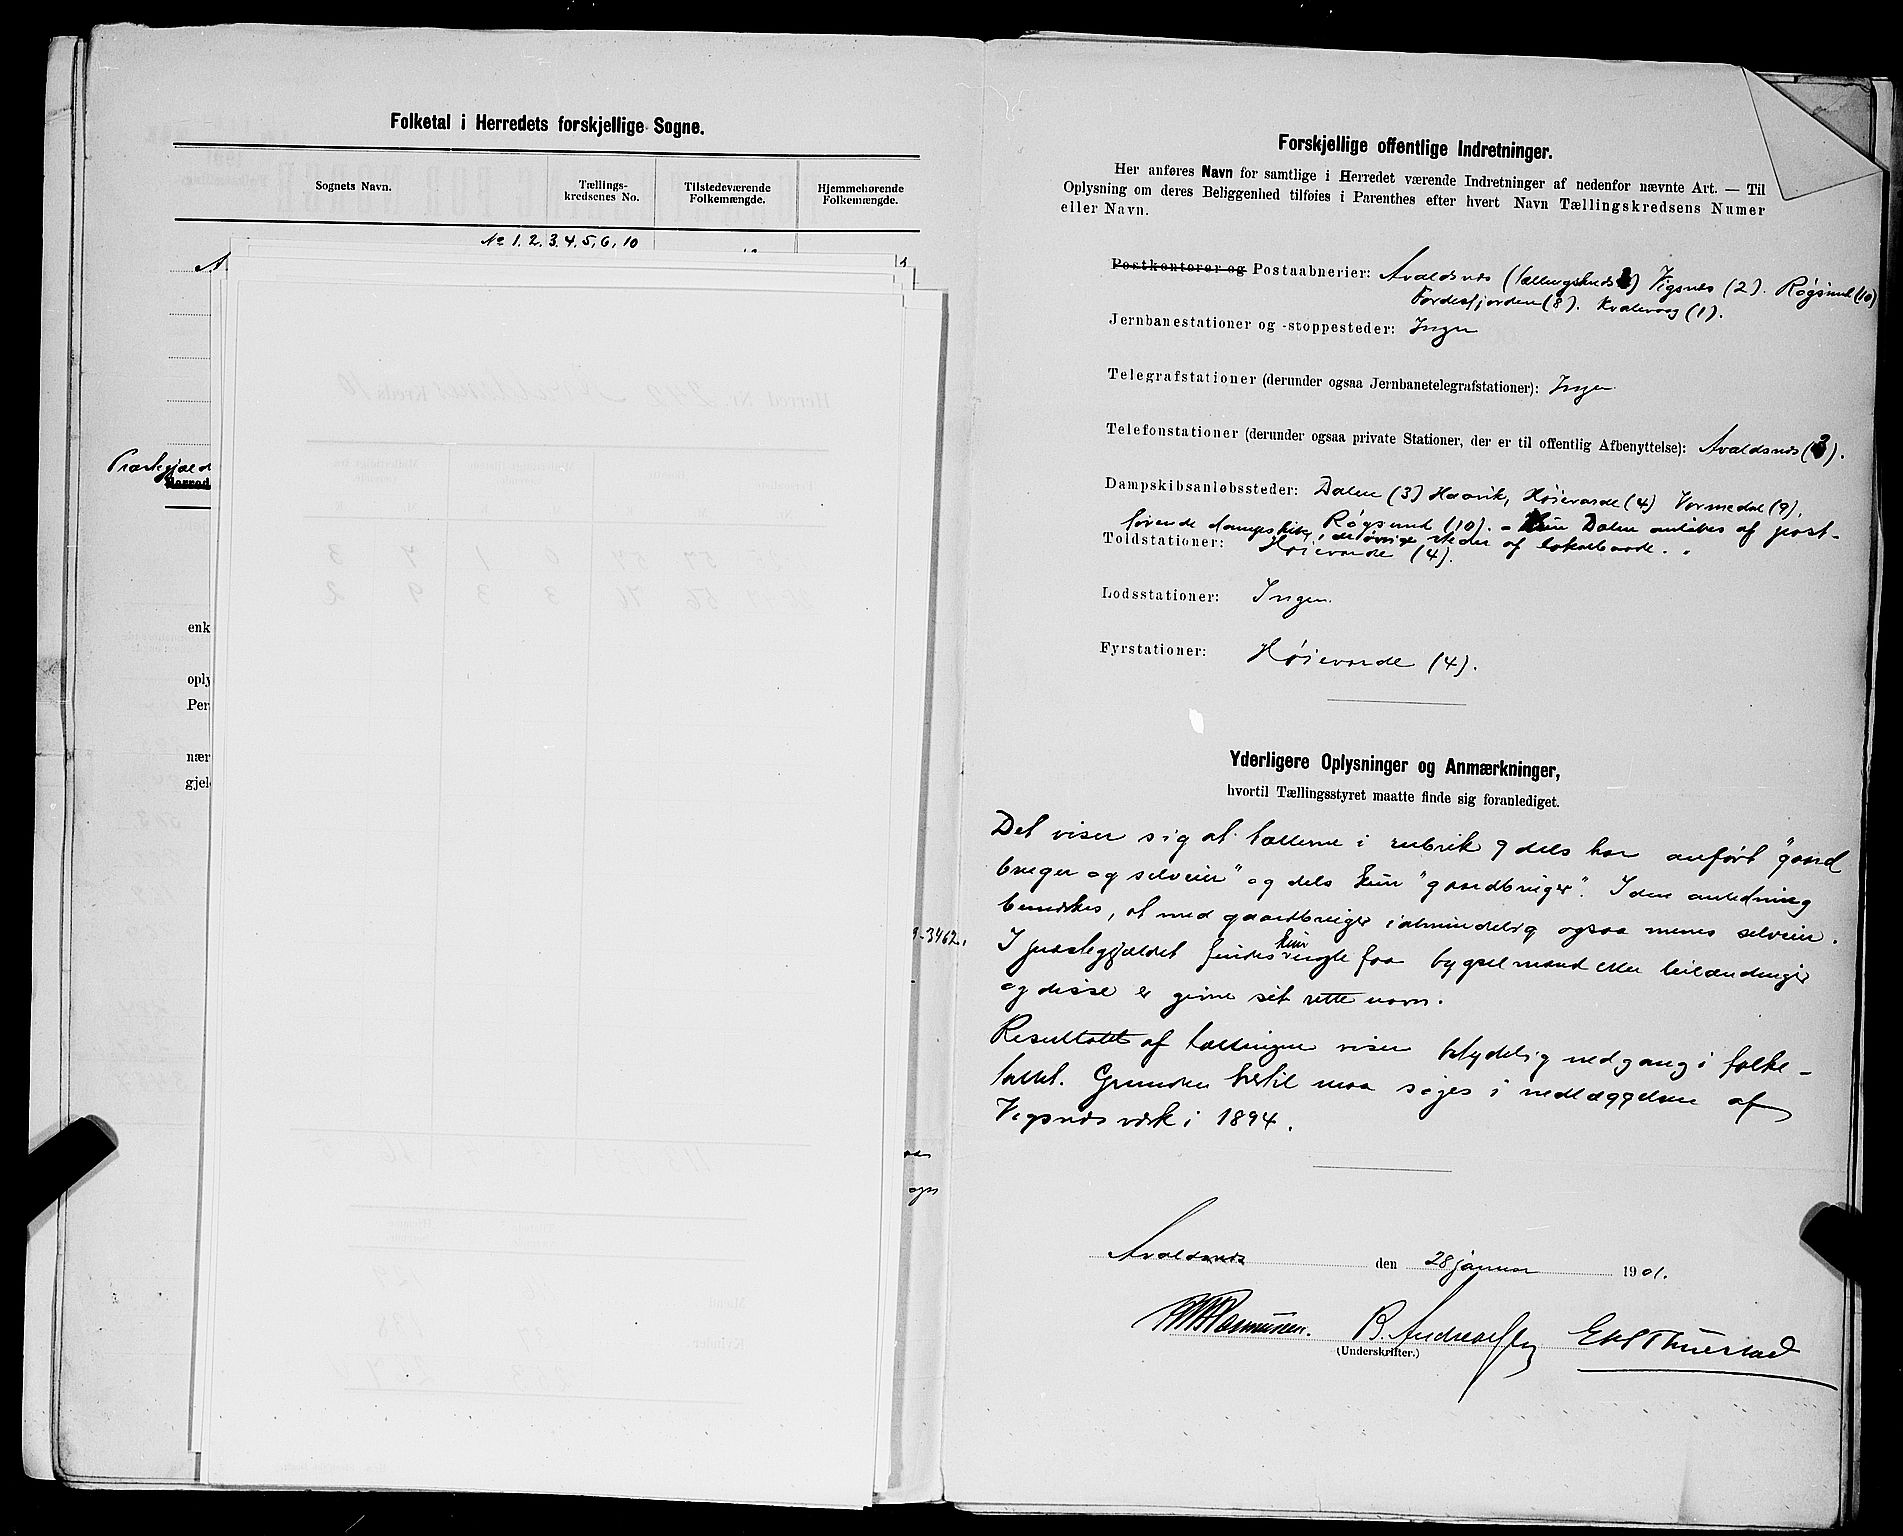 Folketal i Herredets forskjellige Sogne.
Sognets Navn.
Tællings-
kredsenes No.
Tilstedeværende
Folkemængde.
Hjemmehørende
Folkemængde.
No 1. 2. 3. 4. 5, 6, 10
A
Præstegjæld
Herred
enk
oply
Per
nær
gjel
3462.
Forskjellige offentlige Indretninger.
Her anføres Navn for samtlige i Herredet værende Indretninger af nedenfor nævnte Art. — Til
Oplysning om deres Beliggenhed tilføies i Parenthes efter hvert Navn Tællingskredsens Numer
eller Navn.
Postkontorer og Postaabnerier: Avaldsnes (tællingskreds 3) Vigsnæs (2). Røgsund (10)
Førdesfjorden (8). Kvalevaag (1).
Jernbanestationer og -stoppesteder: Ingen
Telegrafstationer (derunder ogsaa Jernbanetelegrafstationer): Ingen.
Telefonstationer (derunder ogsaa private Stationer, der er til offentlig Afbenyttelse): Avaldsnes (3).
Dampskibsanløbsteder: Dalen (3) Haavik, Høievarde (4) Vormedal (9),
Røgsund (10). - Kun Dalen anløbes af post-
førende dampskibe, de øvrige steder af lokalbaade.
Toldstationer: Høievarde (4).
Lodsstationer: Ingen.
Fyrstationer: Høievarde (4).
Yderligere Oplysninger og Anmærkninger,
hvortil Tællingsstyret maatte finde sig foranlediget.
Det viser sig at tællerne i rubrik 9 dels har anført "gaard
bruger og selveier" og dels kun "gaardbruger". I den anledning
bemærkes, at med gaardbruger i almindelig ogsaa menes selveier.
I præstegjældet findes kun nogle faa bygselmænd eller leilændinger
og disse er givne sit rette navn.
Resultatet af tællingen viser betydelig nedgang i folke-
tallet. Grunden hertil maa søges i nedlæggelsen af
Vigsnæs værk i 1894.
Avaldsnes den 28 januar 1901.
Rasmussen. B. Andreassen
(Underskrifter.)